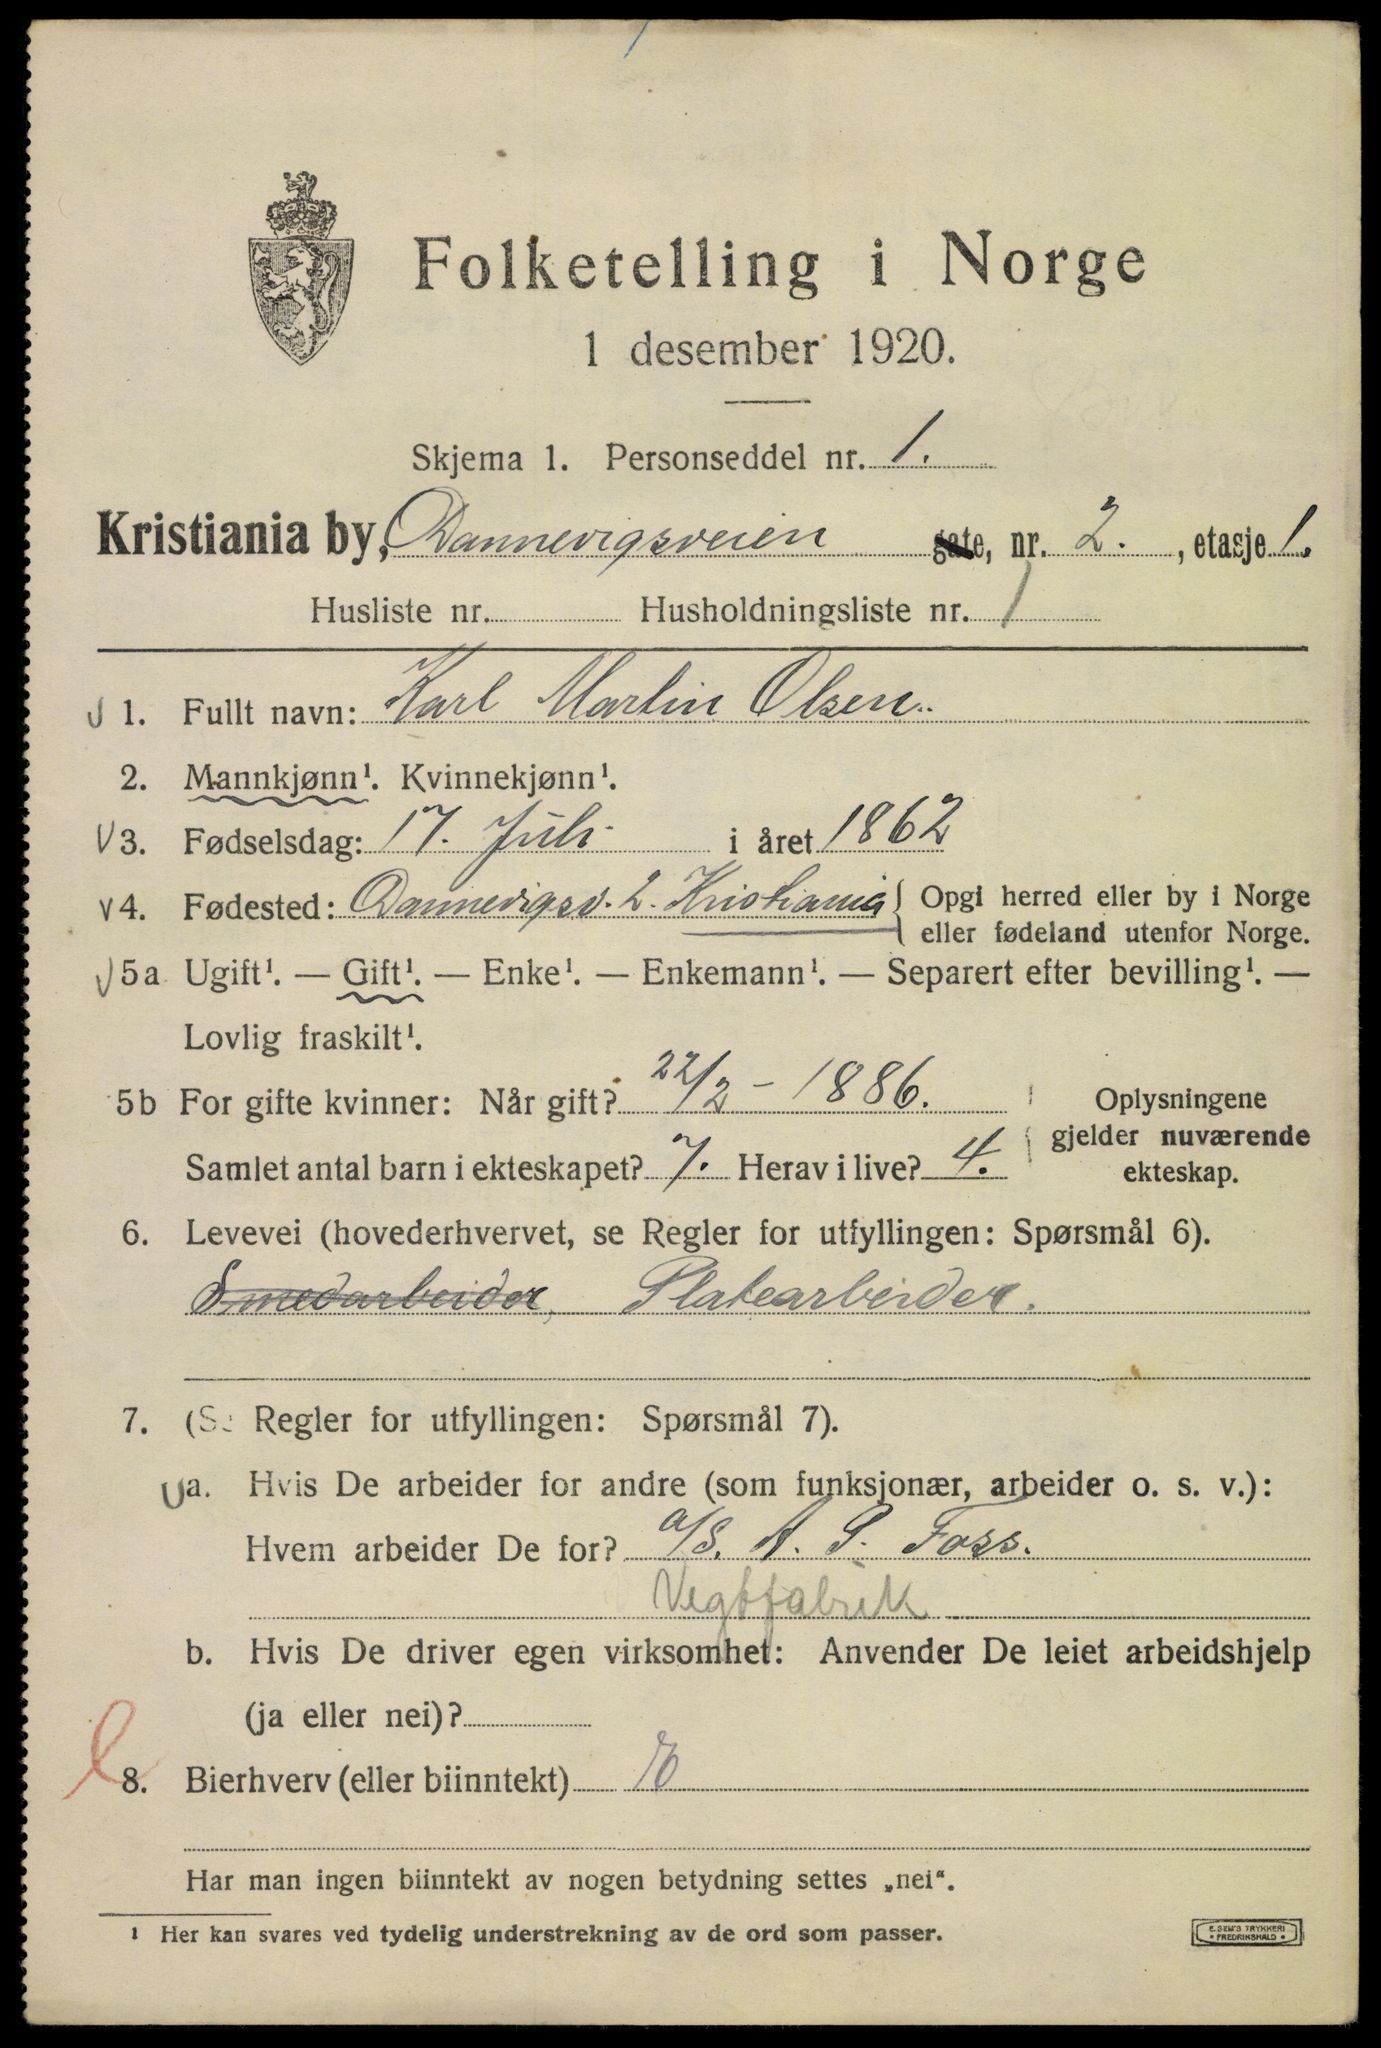 Folketelling i Norge
1 desember 1920.
Skjema 1. Personseddel nr. 1.
Kristiania by, Dannevigsveien gate, nr. 2. , etasje 1.
Husliste nr. Husholdningsliste nr. 1
1. Fullt navn: Karl Martin Olsen.
2. Mannkjønn¹. Kvinnekjønn¹.
V 3. Fødselsdag: 17. Juli i året 1862
v 4. Fødested: Dannevigsv. 2. Kristiania { Opgi herred eller by i Norge
eller fødeland utenfor Norge.
5a Ugift¹. — Gift¹. — Enke¹. — Enkemann¹. — Separert efter bevilling¹. —
Lovlig fraskilt¹.
5b For gifte kvinner: Når gift? 22/2 - 1886. Oplysningene
gjelder nuværende
Samlet antal barn i ekteskapet? 7. Herav i live? 4. ekteskap.
6. Levevei (hovederhvervet, se Regler for utfyllingen: Spørsmål 6).
Smedarbeider, Platearbeider.
7. (Se Regler for utfyllingen: Spørsmål 7).
a. Hvis De arbeider for andre (som funksjonær, arbeider o. s. v.):
Hvem arbeider De for? a/S. A. P. Foss.
b. Hvis De driver egen virksomhet: Anvender De leiet arbeidshjelp
(ja eller nei)?
8. Bierhverv (eller biinntekt)
Har man ingen biinntekt av nogen betydning settes „nei“.
¹ Her kan svares ved tydelig understrekning av de ord som passer.
E. SEM'S TRYKKERI
• FREDRIKSHALD •